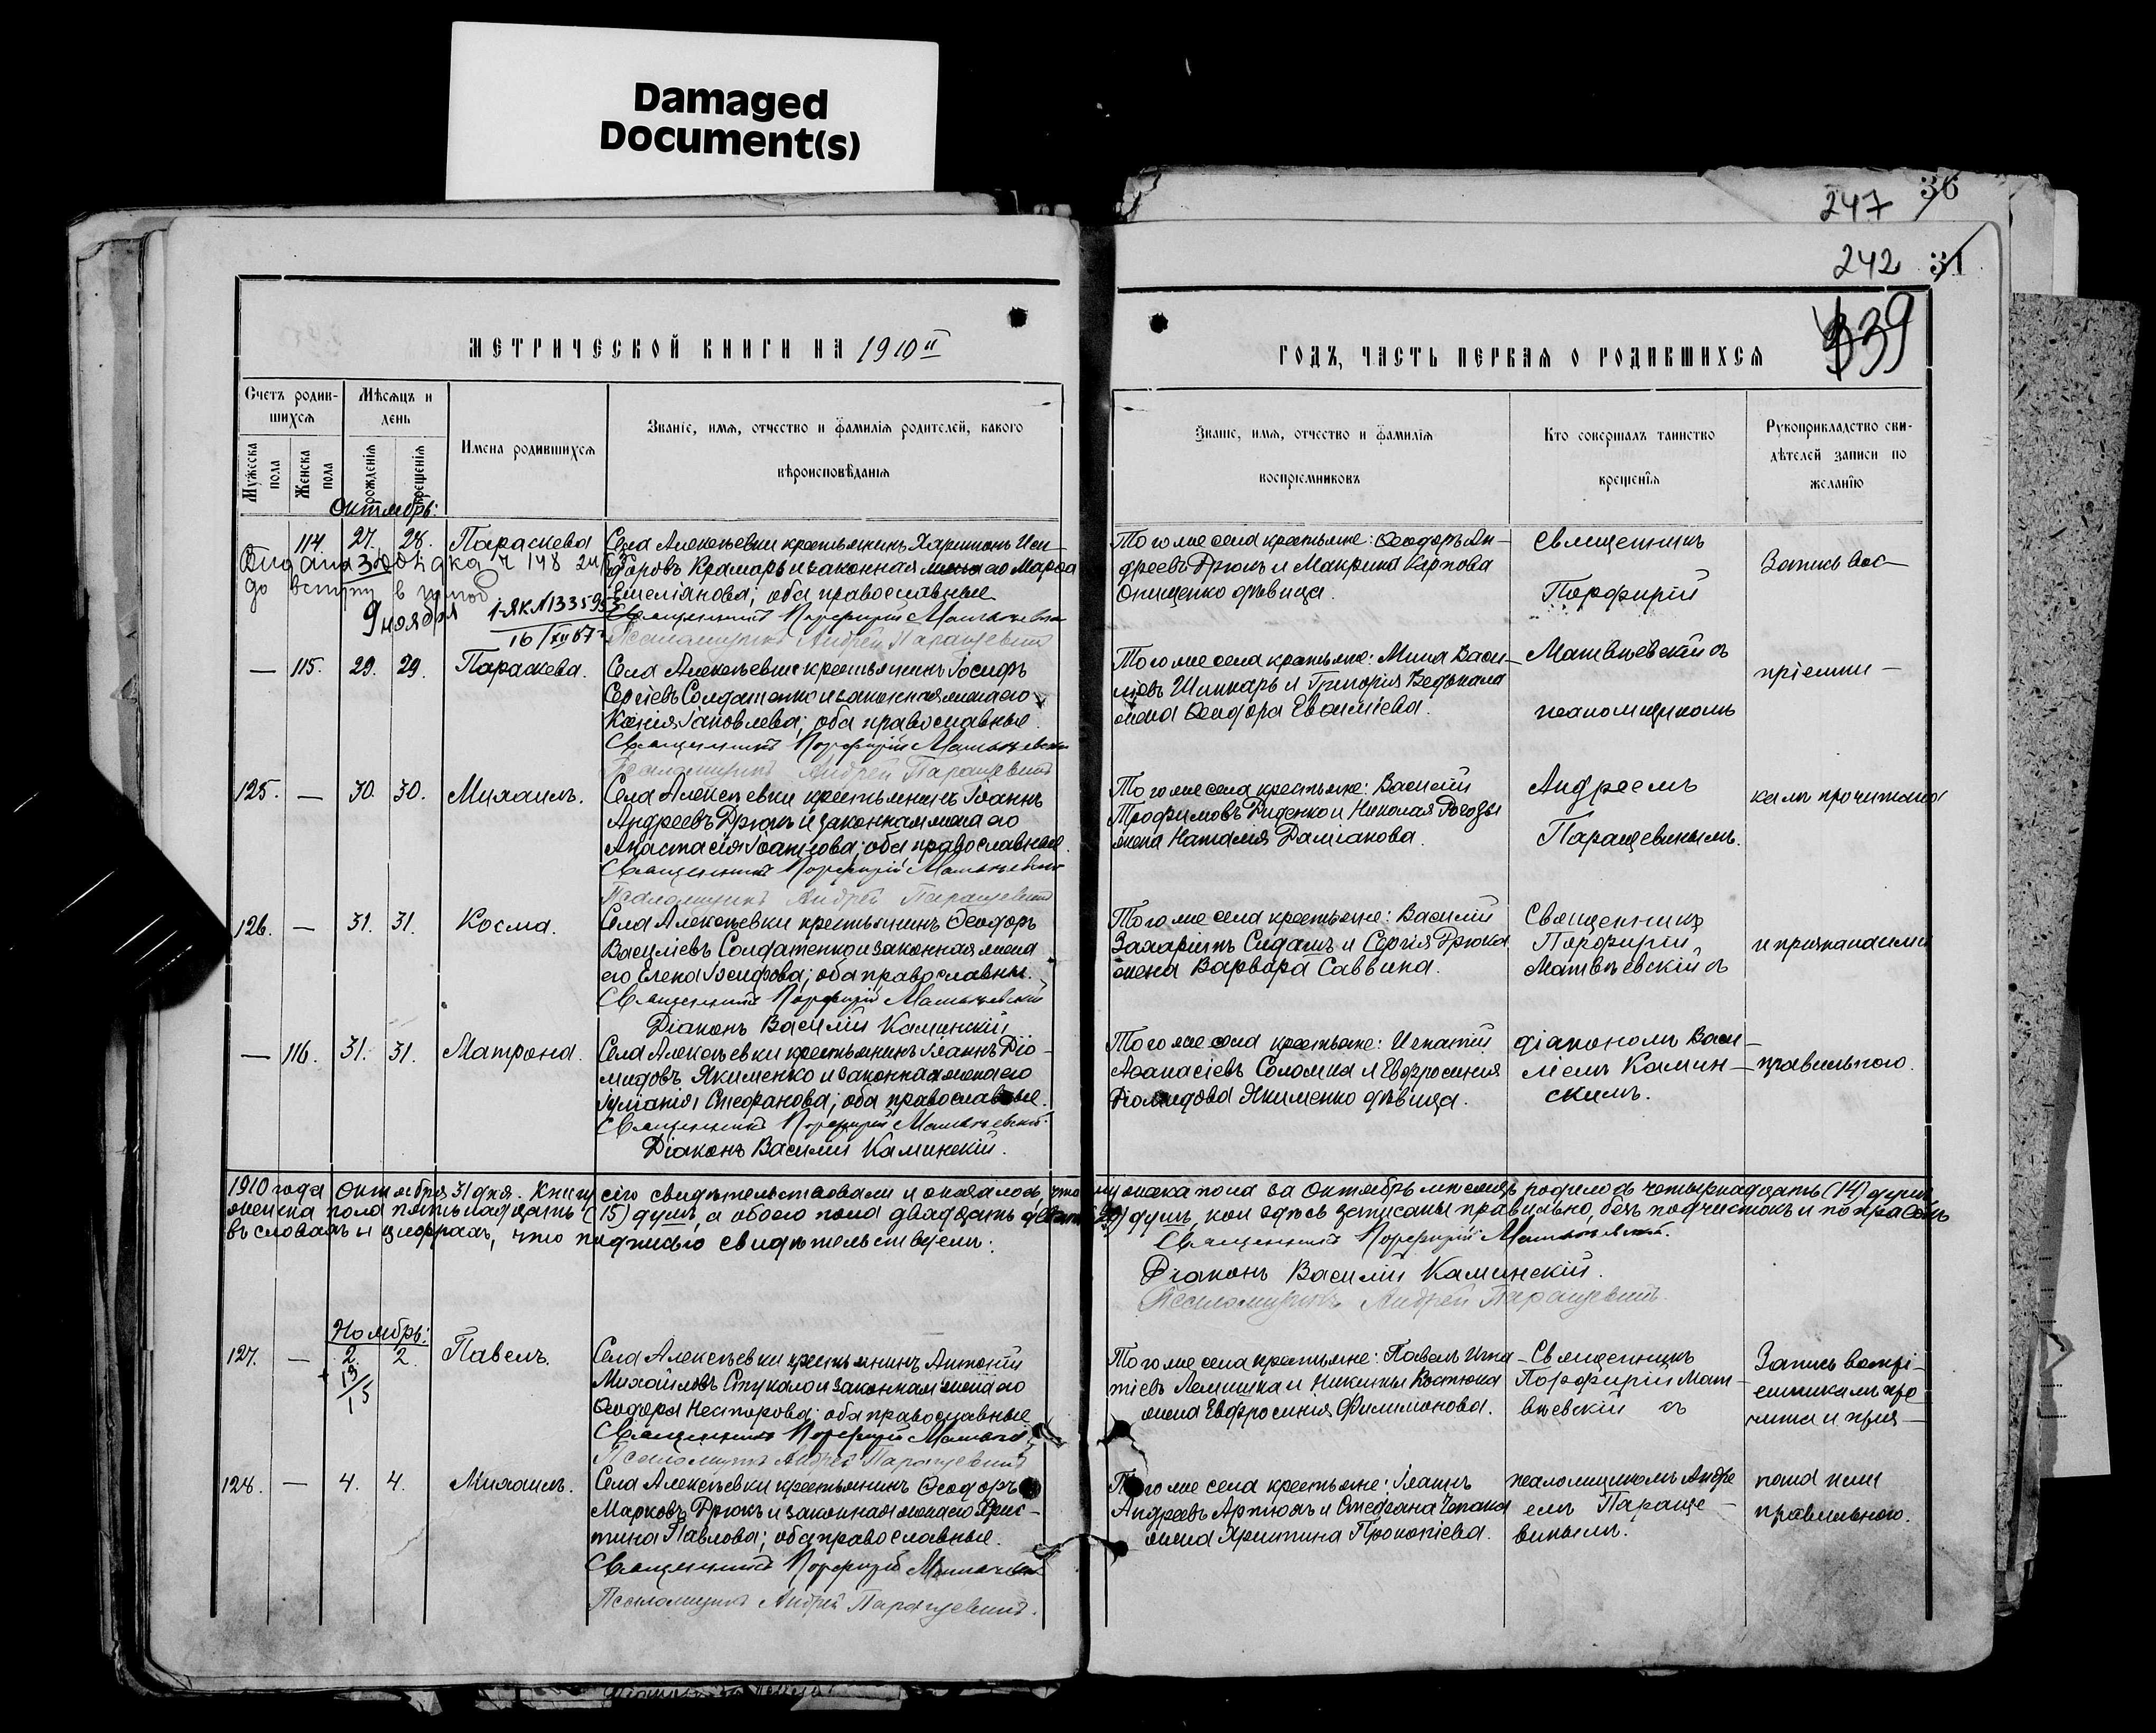 Damaged
Document(s)
247 36
242 31
339
МЕТРИЧЕСКОЙ КНИГИ НА 1910й
Счетъ родив-
шихся
Мѣсяцъ и
день
Мужеска
пола
Женска
пола
рожденія
крещенія
Имена родившихся
Званіе, имя, отчество и фамилія родителей, какого
вѣроисповѣданія
Октябрь:
114. 27. 28. Параскева
Села Алексѣевки крестьянинъ Харитонъ Иси-
доровъ Крамарь и законная жена его Марѳа
Емеліанова; оба православные
Священникъ Порфирій Матвѣевскій
Псаломщикъ Андрей Паращевинъ
до вступу в
9 ноября
16/XII 67
— 115. 29. 29. Параскева.
Села Алексѣевки крестьянинъ Іосифъ
Сергіевъ Солдатенко и законная жена его
Ксенія Іаковлева; оба православные.
Священникъ Порфирій Матвѣевскій
Псаломщикъ Андрей Паращевинъ
125. — 30. 30. Михаилъ.
Села Алексѣевки крестьянинъ Іоаннъ
Андреевъ Дрюкъ и законная жена его
Анастасія Іоаннова; оба православные.
Священникъ Порфирій Матвѣевскій
Псаломщикъ Андрей Паращевинъ
126. — 31. 31. Косма.
Села Алексѣевки крестьянинъ Ѳеодоръ
Василіевъ Солдатенко и законная жена
его Елена Іосифова; оба православны.
Священникъ Порфирій Матвѣевскій
Діаконъ Василій Каминскій
— 116. 31. 31. Матрона.
Села Алексѣевки крестьянинъ Іоаннъ Діо-
мидовъ Якименко и законная жена его
Іуліанія Стефанова; оба православные.
Священникъ Порфирій Матвѣевскій.
Діаконъ Василій Каминскій.
1910 года Октября 31 дня. Книгу сію свидѣтельствовали и оказалось, что мужеска пола за Октябрь мѣсяцъ родилось четырнадцать (14) душъ
женска пола пятьнадцать (15) душъ, а обоего пола двадцать девять (29) душъ, кои здѣсь записаны правильно, безъ подчистокъ и поправокъ
въ словахъ и цифрахъ, что подписью свидѣтельствуемъ:
Священникъ Порфирій Матвѣевскій.
Діаконъ Василій Каминскій.
Псаломщикъ Андрей Паращевинъ.
Ноябрь:
127. — 2. 2. Павелъ.
13/15
Села Алексѣевки крестьянинъ Антоній
Михайловъ Стукало и законная жена его
Ѳеодора Несторова; оба православные
Священникъ Порфирій Матвѣевскій
Псаломщикъ Андрей Паращевинъ
128. — 4. 4. Михаилъ.
Села Алексѣевки крестьянинъ Ѳеодоръ
Марковъ Дрюкъ и законная жена его Хрис-
тина Павлова; оба православные.
Священникъ Порфирій Матвѣевскій
Псаломщикъ Андрей Паращевинъ.
ГОДЪ, ЧАСТЬ ПЕРВАЯ О РОДИВШИХСЯ
Званіе, имя, отчество и фамилія
воспріемниковъ
Кто совершалъ таинство
крещенія
Рукоприкладство сви-
дѣтелей записи по
желанію
Того же села крестьяне: Ѳеодоръ Ан-
дреевъ Дрюкъ и Макрина Карпова
Онищенко дѣвица.
Священникъ
Порфирій
Запись вос-
Того же села крестьяне: Мина Васи-
ліевъ Шинкарь и Григорія Ведькала
жена Ѳеодора Евѳиміева.
Матвѣевскій съ
псаломщикомъ
пріемни-
Того же села крестьяне: Василій
Трофимовъ Руденко и Николая Рогозы
жена Наталія Даміанова.
Андреемъ
Паращевинымъ.
камъ прочитана
Того же села крестьяне: Василій
Захаріинъ Сидашъ и Сергія Дрюка
жена Варвара Саввина.
Священникъ
Порфирій
Матвѣевскій съ
и признана ими
Того же села крестьяне: Игнатій
Аѳанасіевъ Соломка и Евфросинія
Діомидова Якименко дѣвица.
діакономъ Васи-
ліемъ Камин-
скимъ.
правильною.
Того же села крестьяне: Павелъ Игна-
тіевъ Лемишка и Никиты Костюка
жена Евфросинія Филимонова.
Священникъ
Порфирій Мат-
вѣевскій съ
Запись воспрі-
емникамъ про
чита и приз-
Того же села крестьяне: Іоаннъ
Андреевъ Артюхъ и Стефана Чепака
жена Христина Прокопіева.
псаломщикомъ Андре
емъ Параще-
винымъ.
нана ими
правильною.